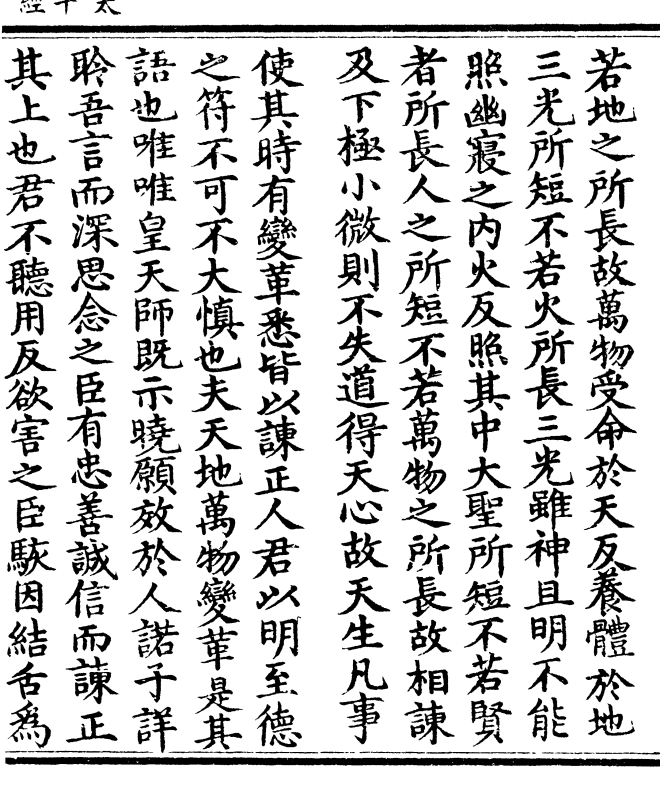 太平經
若地之所長故萬物受命於天反養體於地
三光所短不若火所長三光雖神且明不能
照幽寢之內火反照其中大聖所短不若賢
者所長人之所短不若萬物之所長故相諫
及下極小微則不失道得天心故天生凡事
使其時有變革悉皆以諫正人君以明至德
之符不可不大慎也夫天地萬物變革是其
語也唯唯皇天師既示曉願效於人諾子詳
聆吾言而深思念之臣有忠善誠信而諫正
其上也君不聽用反欲害之臣駭因結舌爲